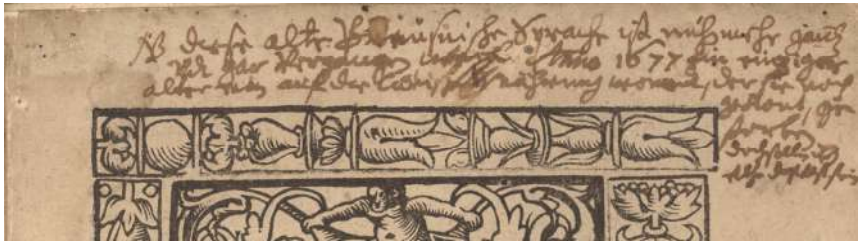 NB diese alte Preüsnische Sprache ist nuhnmehr gantz
Vndt gar Vergangen worden Anno 1677 ein einziger
alter man auf der Nährung wonend, der sie noch
gekont, ge
storben
doch sollen